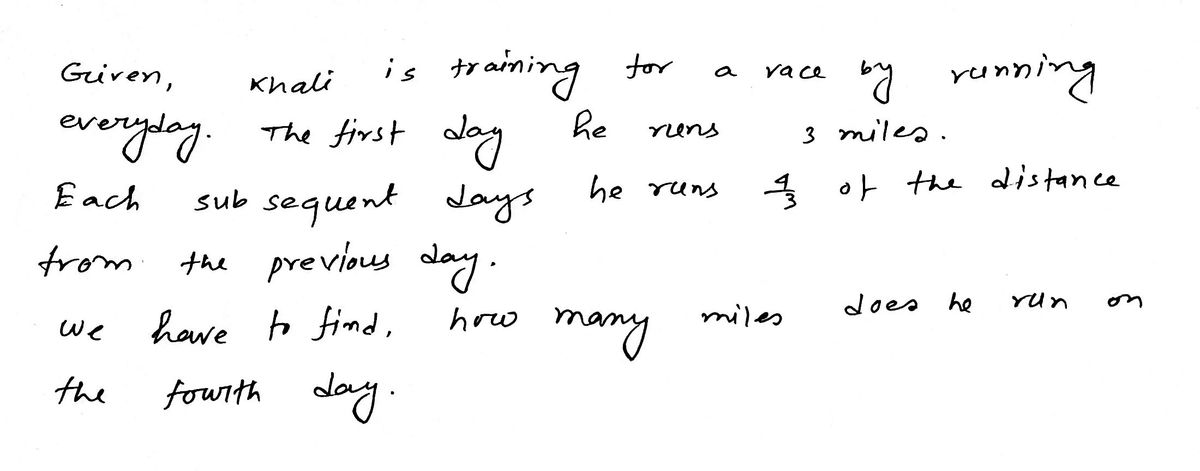 Given, Khali is training for a race by running
everyday. The first day he runs 3 miles.
Each sub sequent days he runs 4/3 of the distance
from the previous day.
We have to find, how many miles does he run on
the fourth day.